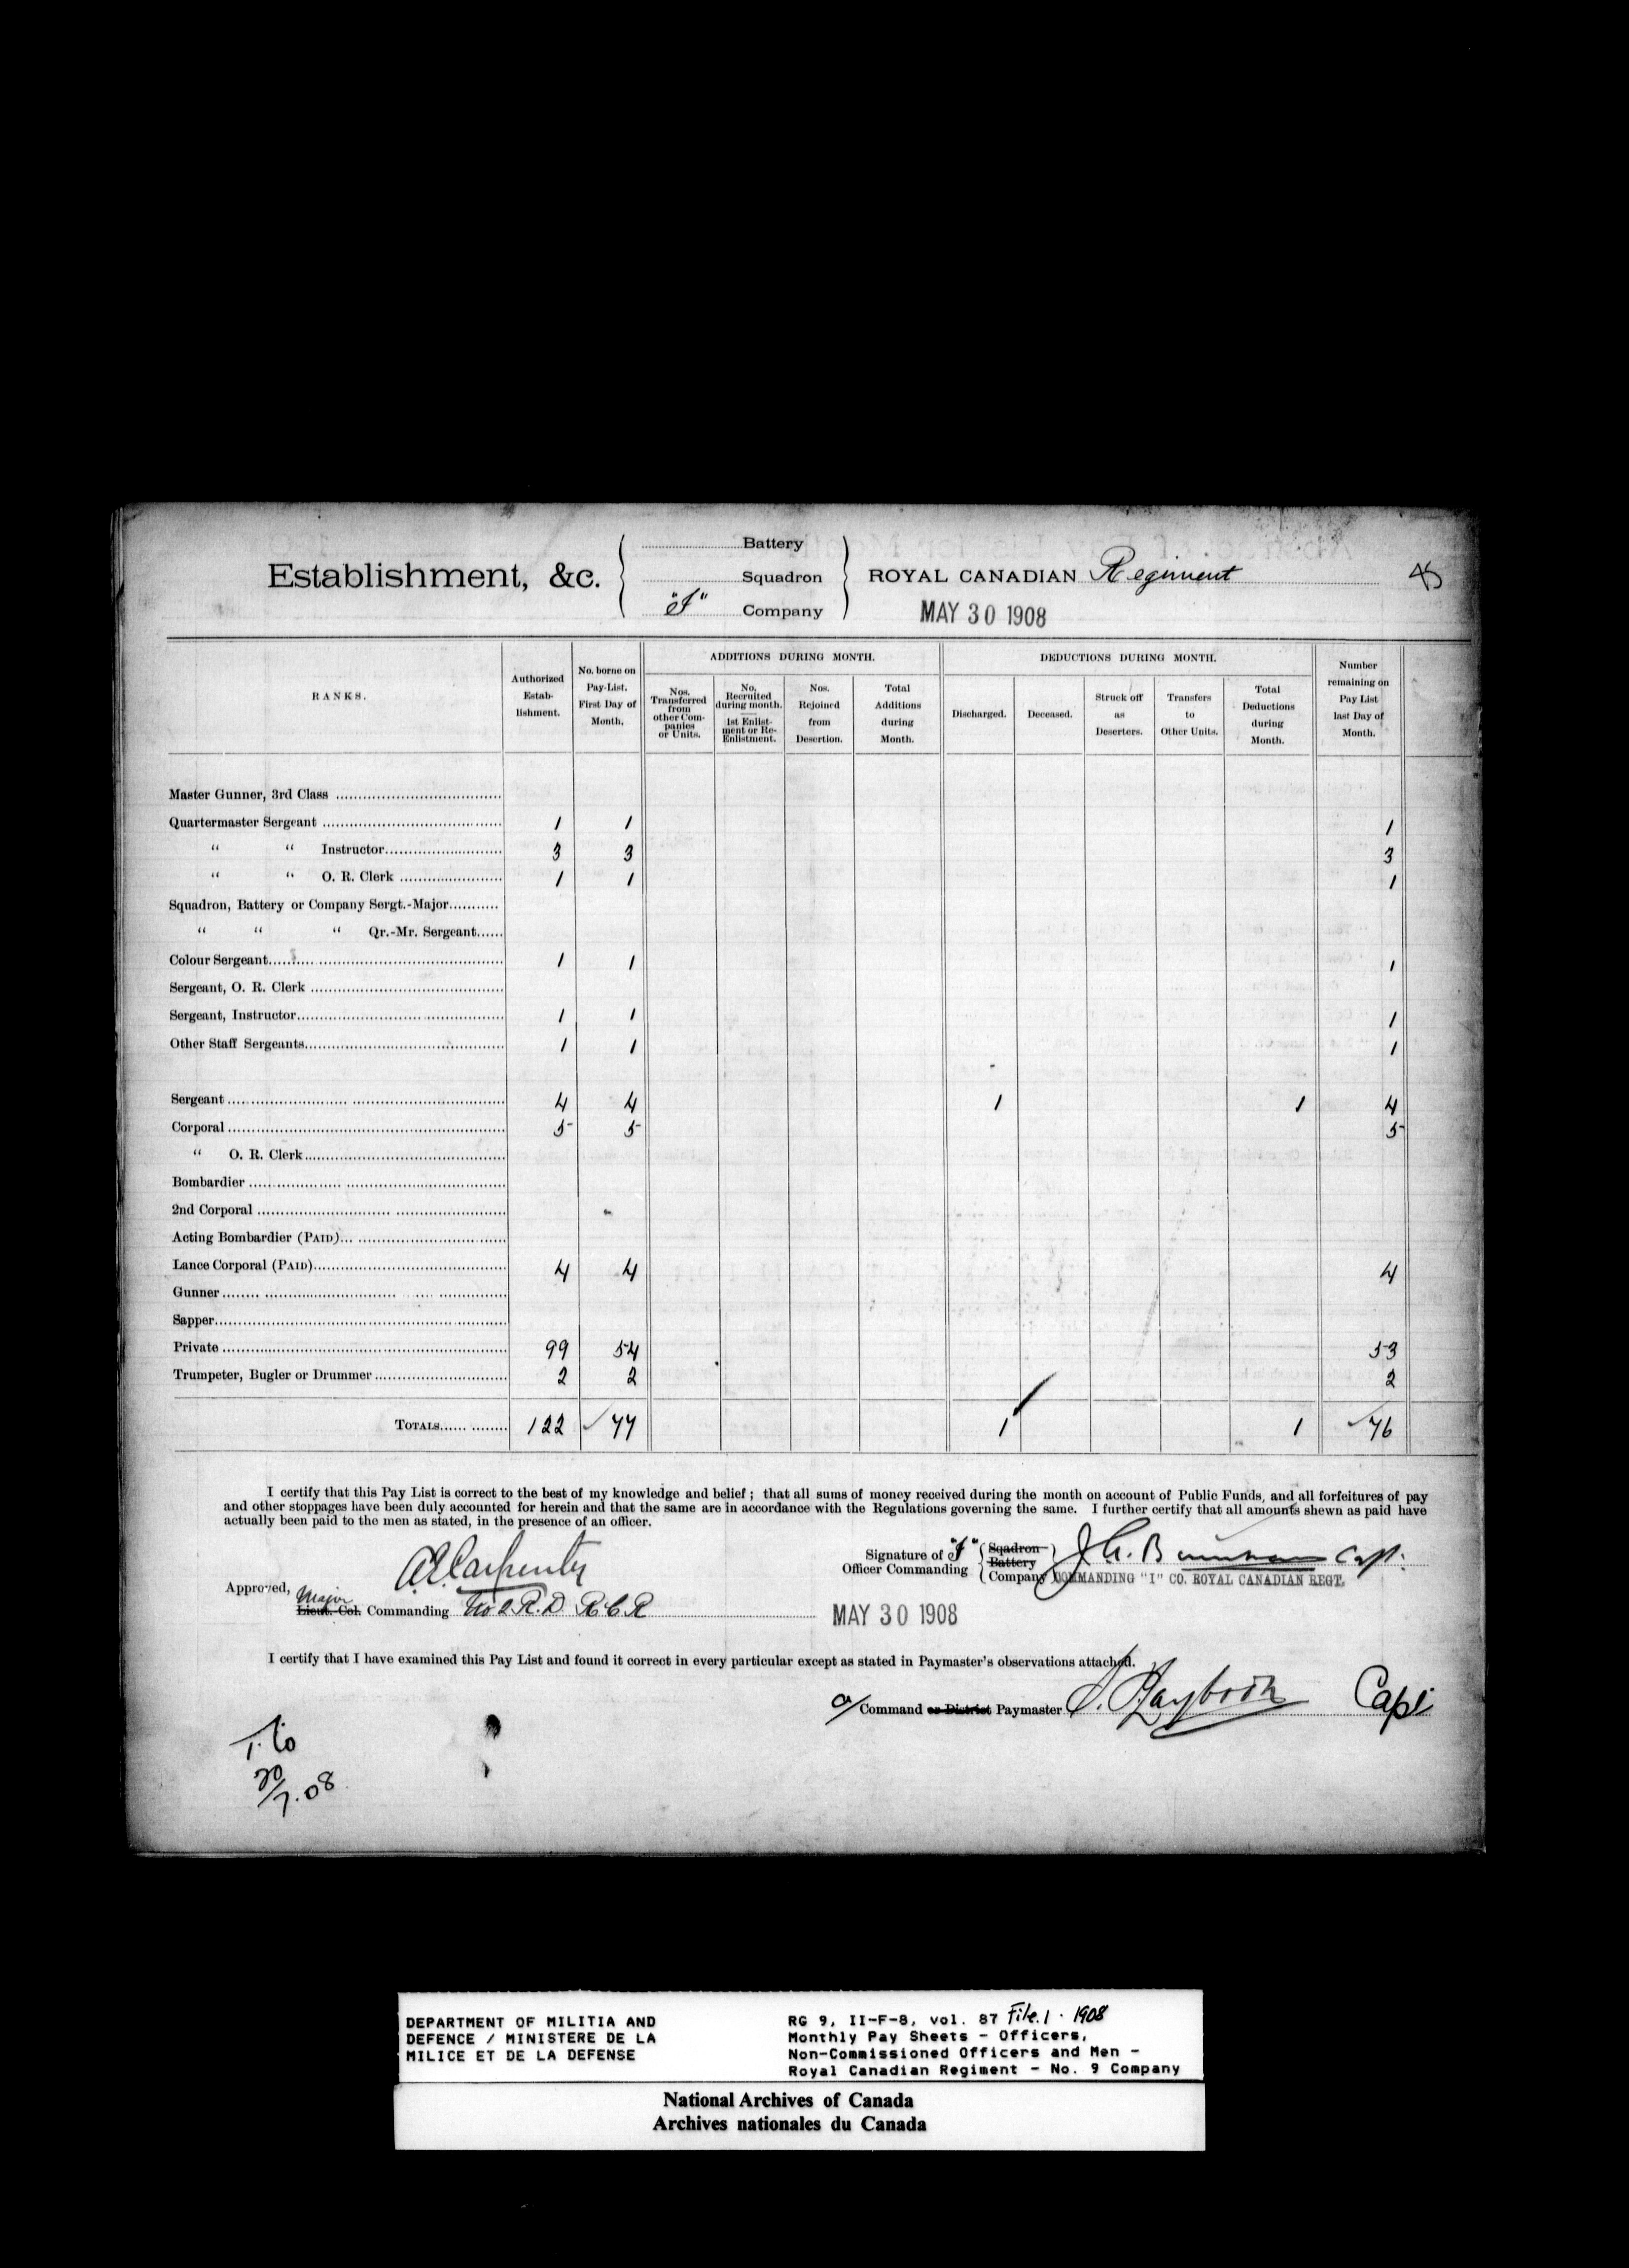 Establishment, &c. { Battery
Squadron
"I" Company } ROYAL CANADIAN Regiment
MAY 30 1908
RANKS.
Authorized Establishment.
No. borne on Pay-List. First Day of Month.
ADDITIONS DURING MONTH.
Nos. Transferred from other Companies or Units.
No. Recruited during month. 1st Enlistment or Re-Enlistment.
Nos. Rejoined from Desertion.
Total Additions during Month.
DEDUCTIONS DURING MONTH.
Discharged.
Deceased.
Struck off as Deserters.
Transfers to Other Units.
Total Deductions during Month.
Number remaining on Pay List last Day of Month.
Master Gunner, 3rd Class
Quartermaster Sergeant 1 1 1
" " Instructor 3 3 3
" " O. R. Clerk 1 1 1
Squadron, Battery or Company Sergt.-Major
" " " Qr.-Mr. Sergeant
Colour Sergeant 1 1 1
Sergeant, O. R. Clerk
Sergeant, Instructor 1 1 1
Other Staff Sergeants 1 1 1
Sergeant 4 4 1 1 4
Corporal 5 5 5
" O. R. Clerk
Bombardier
2nd Corporal
Acting Bombardier (PAID)
Lance Corporal (PAID) 4 4 4
Gunner
Sapper
Private 99 54 53
Trumpeter, Bugler or Drummer 2 2 2
TOTALS 122 77 1 1 76
I certify that this Pay List is correct to the best of my knowledge and belief ; that all sums of money received during the month on account of Public Funds, and all forfeitures of pay
and other stoppages have been duly accounted for herein and that the same are in accordance with the Regulations governing the same. I further certify that all amounts shewn as paid have
actually been paid to the men as stated, in the presence of an officer.
Signature of "I" Officer Commanding { Sqadron
Battery
Company } Capt.
COMMANDING "I" CO. ROYAL CANADIAN REGT.
A.E. Carpenter
Approved, Major
Lieut. Col. Commanding No 2 R.D. R.C.R
MAY 30 1908
I certify that I have examined this Pay List and found it correct in every particular except as stated in Paymaster's observations attached.
a/Command or District Paymaster Capt
20/7.08
DEPARTMENT OF MILITIA AND
DEFENCE / MINISTERE DE LA
MILICE ET DE LA DEFENSE
RG 9, II-F-8, vol. 87 File.1 . 1908
Monthly Pay Sheets - Officers,
Non-Commissioned Officers and Men -
Royal Canadian Regiment - No. 9 Company
National Archives of Canada
Archives nationales du Canada